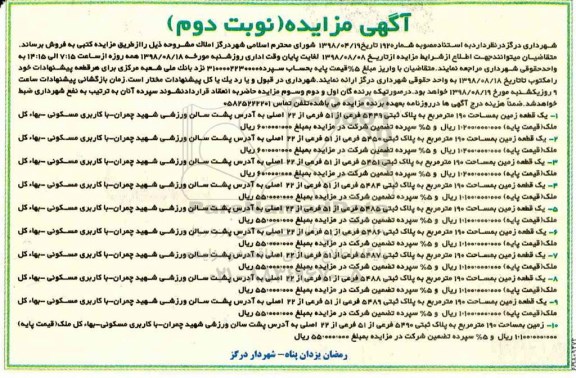 آگهی مزایده(نوبت دوم)
شهرداری درگزدرنظرداردبه استنادمصوبه شماره۱۹۲۰ تاریخ۱۳۹۸/۰۴/۱۹ شورای محترم اسلامی شهردرگز املاک مشروحه ذیل رااز‌طریق مزایده کتبی به فروش برساند.
متقاضیان میتوانندجهت اطلاع ازشرایط مزایده ازتاریخ ۱۳۹۸/۰۸/۰۸ لغایت پایان وقت اداری روزشنبه مورخه ۱۳۹۸/۰۸/۱۸ همه روزه ازساعت ۷:۱۵ الی ۱۴:۱۵ به
واحدحقوقی شهرداری مراجعه نمایند. متقاضیان با واریز مبلغ ۵%قیمت پایه بحساب سپرده۳۱۰۰۰۰۲۲۳۰۰۰۰ نزد بانک ملی شعبه مرکزی برای هرقطعه پیشنهادات خود
رامکتوب تاتاریخ ۱۳۹۸/۰۸/۱۸ به واحد حقوقی شهرداری درگز ارائه نمایند.شهرداری در قبول و یا رد یک یا کل پیشنهادات مختار است.زمان بازگشائی پیشنهادات ساعت
۹ روزیکشنبه مورخ ۱۳۹۸/۰۸/۱۹ خواهد بود.درصورتیکه برنده گان اول و دوم وسوم مزایده حاضربه انعقاد قراردادنشوند سپرده آنان به ترتیب به نفع شهرداری ضبط
خواهدشد.ضمنا هزینه درج آگهی ها درروزنامه بعهده برنده مزایده می باشد.تلفن تماس ۰۵۸۲۵۲۲۲۰۱
۱- یک قطعه زمین بمساحت ۱۹۰ مترمربع به پلاک ثبتی ۵۴۴۹ فرعی از ۵۱ فرعی از ۲۲ اصلی به آدرس پشت سالن ورزشی شهید چمران-با کاربری مسکونی -بهاء کل
ملک(قیمت پایه) ۱۰۲۰۰۰۰۰۰۰۰ ریال و ۵% سپرده تضمین شرکت در مزایده بمبلغ ۶۰۰۰۰۰۰۰ ریال
۲- یک قطعه زمین بمساحت ۱۹۰ مترمربع به پلاک ثبتی ۵۴۵۰ فرعی از ۵۱ فرعی از ۲۲ اصلی به آدرس پشت سالن ورزشی شهید چمران-با کاربری مسکونی -بهاء کل
ملک(قیمت پایه) ۱۰۲۰۰۰۰۰۰۰۰ ریال و ۵% سپرده تضمین شرکت در مزایده بمبلغ ۶۰۰۰۰۰۰۰ ریال
۳- یک قطعه زمین بمساحت ۱۹۰ مترمربع به پلاک ثبتی ۵۴۵۱ فرعی از ۵۱ فرعی از ۲۲ اصلی به آدرس پشت سالن ورزشی شهید چمران-با کاربری مسکونی -بهاء کل
ملک(قیمت پایه) ۱۰۲۰۰۰۰۰۰۰۰ ریال و ۵% سپرده تضمین شرکت در مزایده بمبلغ ۶۰۰۰۰۰۰۰ ریال
۴- یک قطعه زمین بمساحت ۱۹۰ مترمربع به پلاک ثبتی ۵۴۸۴ فرعی از ۵۱ فرعی از ۲۲ اصلی به آدرس پشت سالن ورزشی شهید چمران-با کاربری مسکونی -بهاء کل
ملک(قیمت پایه) ۱۰۱۰۰۰۰۰۰۰۰ ریال و ۵% سپرده تضمین شرکت در مزایده بمبلغ ۵۵۰۰۰۰۰۰ ریال
۵- یک قطعه زمین بمساحت ۱۹۰ مترمربع به پلاک ثبتی ۵۴۸۵ فرعی از ۵۱ فرعی از ۲۲ اصلی به آدرس پشت سالن ورزشی شهید چمران-با کاربری مسکونی -بهاء کل
ملک(قیمت پایه) ۱۰۱۰۰۰۰۰۰۰۰ ریال و ۵% سپرده تضمین شرکت در مزایده بمبلغ ۵۵۰۰۰۰۰۰ ریال
۶- یک قطعه زمین بمساحت ۱۹۰ مترمربع به پلاک ثبتی ۵۴۸۶ فرعی از ۵۱ فرعی از ۲۲ اصلی به آدرس پشت سالن ورزشی شهید چمران-با کاربری مسکونی -بهاء کل
ملک(قیمت پایه) ۱۰۱۰۰۰۰۰۰۰۰ ریال و ۵% سپرده تضمین شرکت در مزایده بمبلغ ۵۵۰۰۰۰۰۰ ریال
۷- یک قطعه زمین بمساحت ۱۹۰ مترمربع به پلاک ثبتی ۵۴۸۷ فرعی از ۵۱ فرعی از ۲۲ اصلی به آدرس پشت سالن ورزشی شهید چمران-با کاربری مسکونی -بهاء کل
ملک(قیمت پایه) ۱۰۱۰۰۰۰۰۰۰۰ ریال و ۵% سپرده تضمین شرکت در مزایده بمبلغ ۵۵۰۰۰۰۰۰ ریال
۸- یک قطعه زمین بمساحت ۱۹۰ مترمربع به پلاک ثبتی ۵۴۸۸ فرعی از ۵۱ فرعی از ۲۲ اصلی به آدرس پشت سالن ورزشی شهید چمران-با کاربری مسکونی -بهاء کل
ملک(قیمت پایه) ۱۰۱۰۰۰۰۰۰۰۰ ریال و ۵% سپرده تضمین شرکت در مزایده بمبلغ ۵۵۰۰۰۰۰۰ ریال
۹- یک قطعه زمین بمساحت ۱۹۰ مترمربع به پلاک ثبتی ۵۴۸۹ فرعی از ۵۱ فرعی از ۲۲ اصلی به آدرس پشت سالن ورزشی شهید چمران-با کاربری مسکونی -بهاء کل
ملک(قیمت پایه) ۱۰۱۰۰۰۰۰۰۰۰ ریال و ۵% سپرده تضمین شرکت در مزایده بمبلغ ۵۵۰۰۰۰۰۰ ریال
۱۰- زمین بمساحت ۱۹۰ مترمربع به پلاک ثبتی ۵۴۹۰ فرعی از ۵۱ فرعی از ۲۲ اصلی به آدرس پشت سالن ورزشی شهید چمران-با کاربری مسکونی-بهاء کل ملک(قیمت پایه)
۱۰۱۰۰۰۰۰۰۰۰ ریال و ۵% سپرده تضمین شرکت در مزایده بمبلغ ۵۵۰۰۰۰۰۰ ریال
رمضان یزدان پناه- شهردار درگز